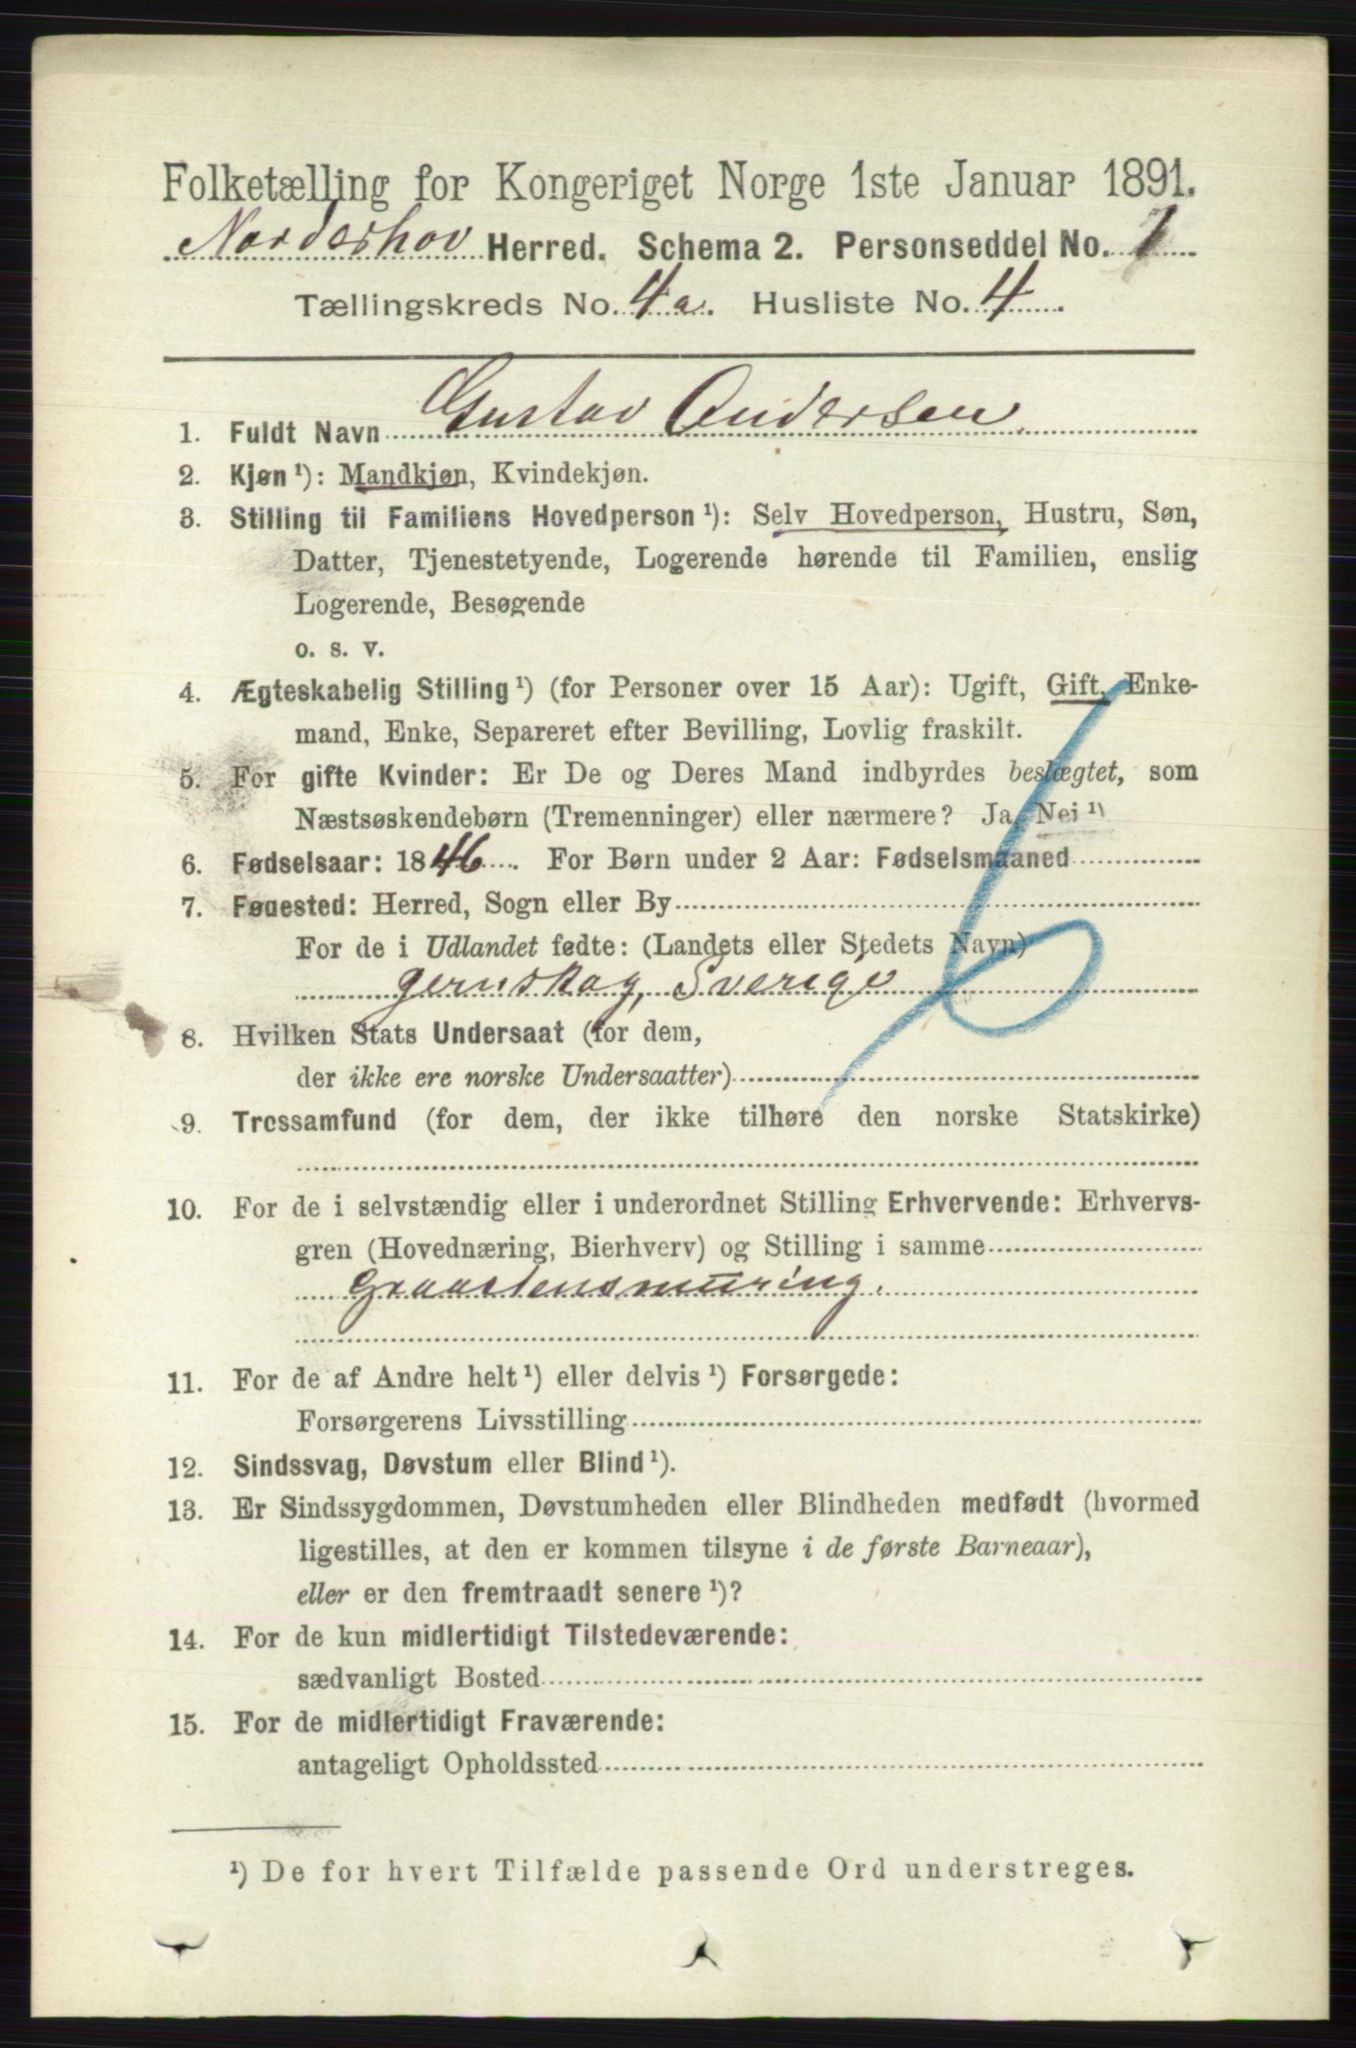 Folketælling for Kongeriget Norge 1ste Januar 1891.
Norderhov Herred. Schema 2. Personseddel No. 1
Tællingskreds No. 4a. Husliste No. 4
1. Fuldt Navn Gustav Andersen
2. Kjøn ¹): Mandkjøn, Kvindekjøn.
3. Stilling til Familiens Hovedperson ¹): Selv Hovedperson, Hustru, Søn,
Datter, Tjenestetyende, Logerende hørende til Familien, enslig
Logerende, Besøgende
o. s. v.
4. Ægteskabelig Stilling ¹) (for Personer over 15 Aar): Ugift, Gift, Enke-
mand, Enke, Separeret efter Bevilling, Lovlig fraskilt.
5. For gifte Kvinder: Er De og Deres Mand indbyrdes beslægtet, som
Næstsøskendebørn (Tremenninger) eller nærmere? Ja, Nei ¹)
6. Fødselsaar: 1846. For Børn under 2 Aar: Fødselsmaaned
7. Føuested: Herred, Sogn eller By
For de i Udlandet fødte: (Landets eller Stedets Navn)
Jernskog, Sverige
8. Hvilken Stats Undersaat (for dem,
der ikke ere norske Undersaatter)
9. Trossamfund (for dem, der ikke tilhøre den norske Statskirke)
10. For de i selvstændig eller i underordnet Stilling Erhvervende: Erhvervs-
gren (Hovednæring, Bierhverv) og Stilling i samme
Graastensmuring.
11. For de af Andre helt ¹) eller delvis ¹) Forsørgede:
Forsørgerens Livsstilling
12. Sindssvag, Døvstum eller Blind ¹).
13. Er Sindssygdommen, Døvstumheden eller Blindheden medfødt (hvormed
ligestilles, at den er kommen tilsyne i de første Barneaar),
eller er den fremtraadt senere ¹)?
14. For de kun midlertidigt Tilstedeværende:
sædvanligt Bosted
15. For de midlertidigt Fraværende:
antageligt Opholdssted
¹) De for hvert Tilfælde passende Ord understreges.